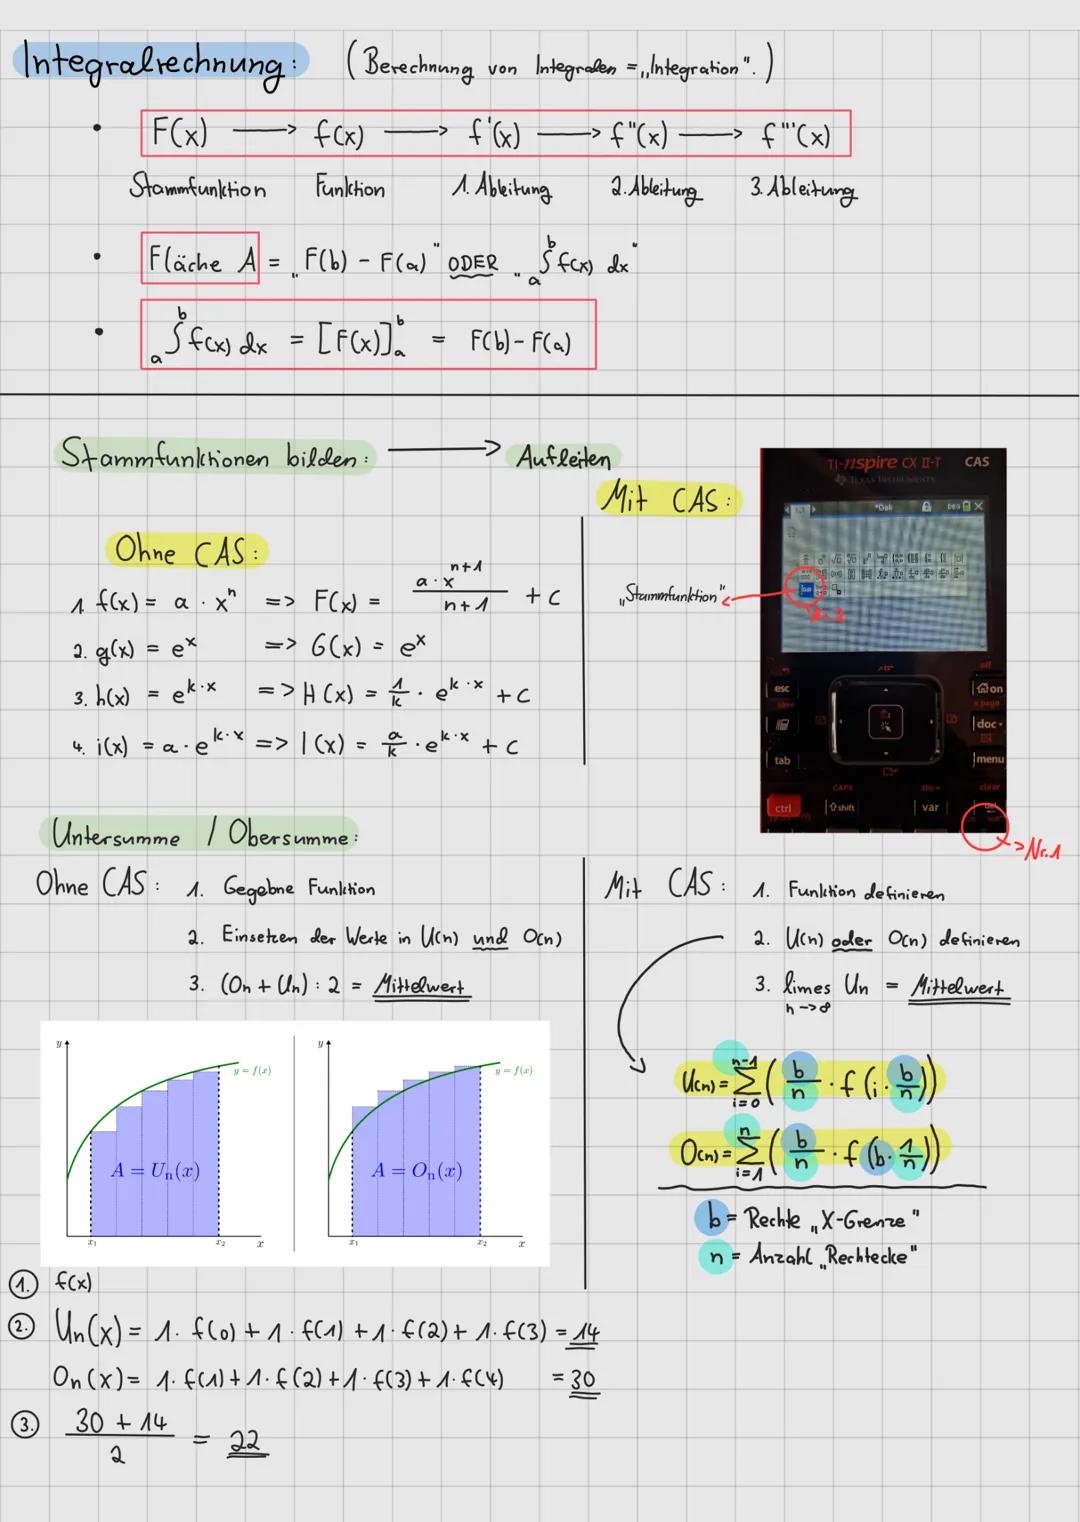 Integralrechnung: (Berechnung von Integralen = „Integration".)
• F(x) ⟶ f(x) ⟶ f'(x) ⟶ f''(x) ⟶ f'''(x)
Stammfunktion Funktion 1. Ableitung 2. Ableitung 3. Ableitung
• Fläche A = „F(b) - F(a)" ODER „ₐ∫ᵇ f(x) dx"
• ₐ∫ᵇ f(x) dx = [F(x)]ₐᵇ = F(b) - F(a)
Stammfunktionen bilden: ⟶ Aufleiten
Ohne CAS:
1. f(x) = a · xⁿ => F(x) = a · xⁿ⁺¹ / n+1 + c
2. g(x) = eˣ => G(x) = eˣ
3. h(x) = e^k·x => H(x) = 1/k · e^k·x + c
4. i(x) = a · e^k·x => I(x) = a/k · e^k·x + c
Mit CAS:
„Stammfunktion"
TI-nspire CX II-T CAS
TEXAS INSTRUMENTS
1.1 *Dok DEG
Nr.2
esc
off
on
save
+page
doc
tab
menu
CAPS
sto→
clear
ctrl
shift
var
del
Nr.1
Untersumme / Obersumme:
Ohne CAS: 1. Gegebne Funktion
2. Einsetzen der Werte in U(n) und O(n)
3. (On + Un) : 2 = Mittelwert
Mit CAS: 1. Funktion definieren
2. U(n) oder O(n) definieren
3. limes Un = Mittelwert
n -> ∞
y
y = f(x)
A = Uₙ(x)
x₁ x₂ x
y
y = f(x)
A = Oₙ(x)
x₁ x₂ x
U(n) = n-1 ∑ i=0 (b/n · f(i · b/n))
O(n) = n ∑ i=1 (b/n · f(b · 1/n))
b = Rechte „X-Grenze"
n = Anzahl „Rechtecke"
1. f(x)
2. Un(x) = 1 · f(0) + 1 · f(1) + 1 · f(2) + 1 · f(3) = 14
On(x) = 1 · f(1) + 1 · f(2) + 1 · f(3) + 1 · f(4) = 30
3. 30 + 14 / 2 = 22